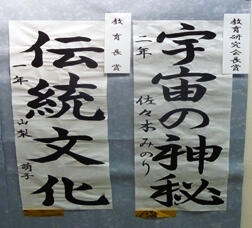 教育研究会長賞
宇宙の神秘
二年 佐々木みのり
教育長賞
伝統文化
一年 山梨 萌子